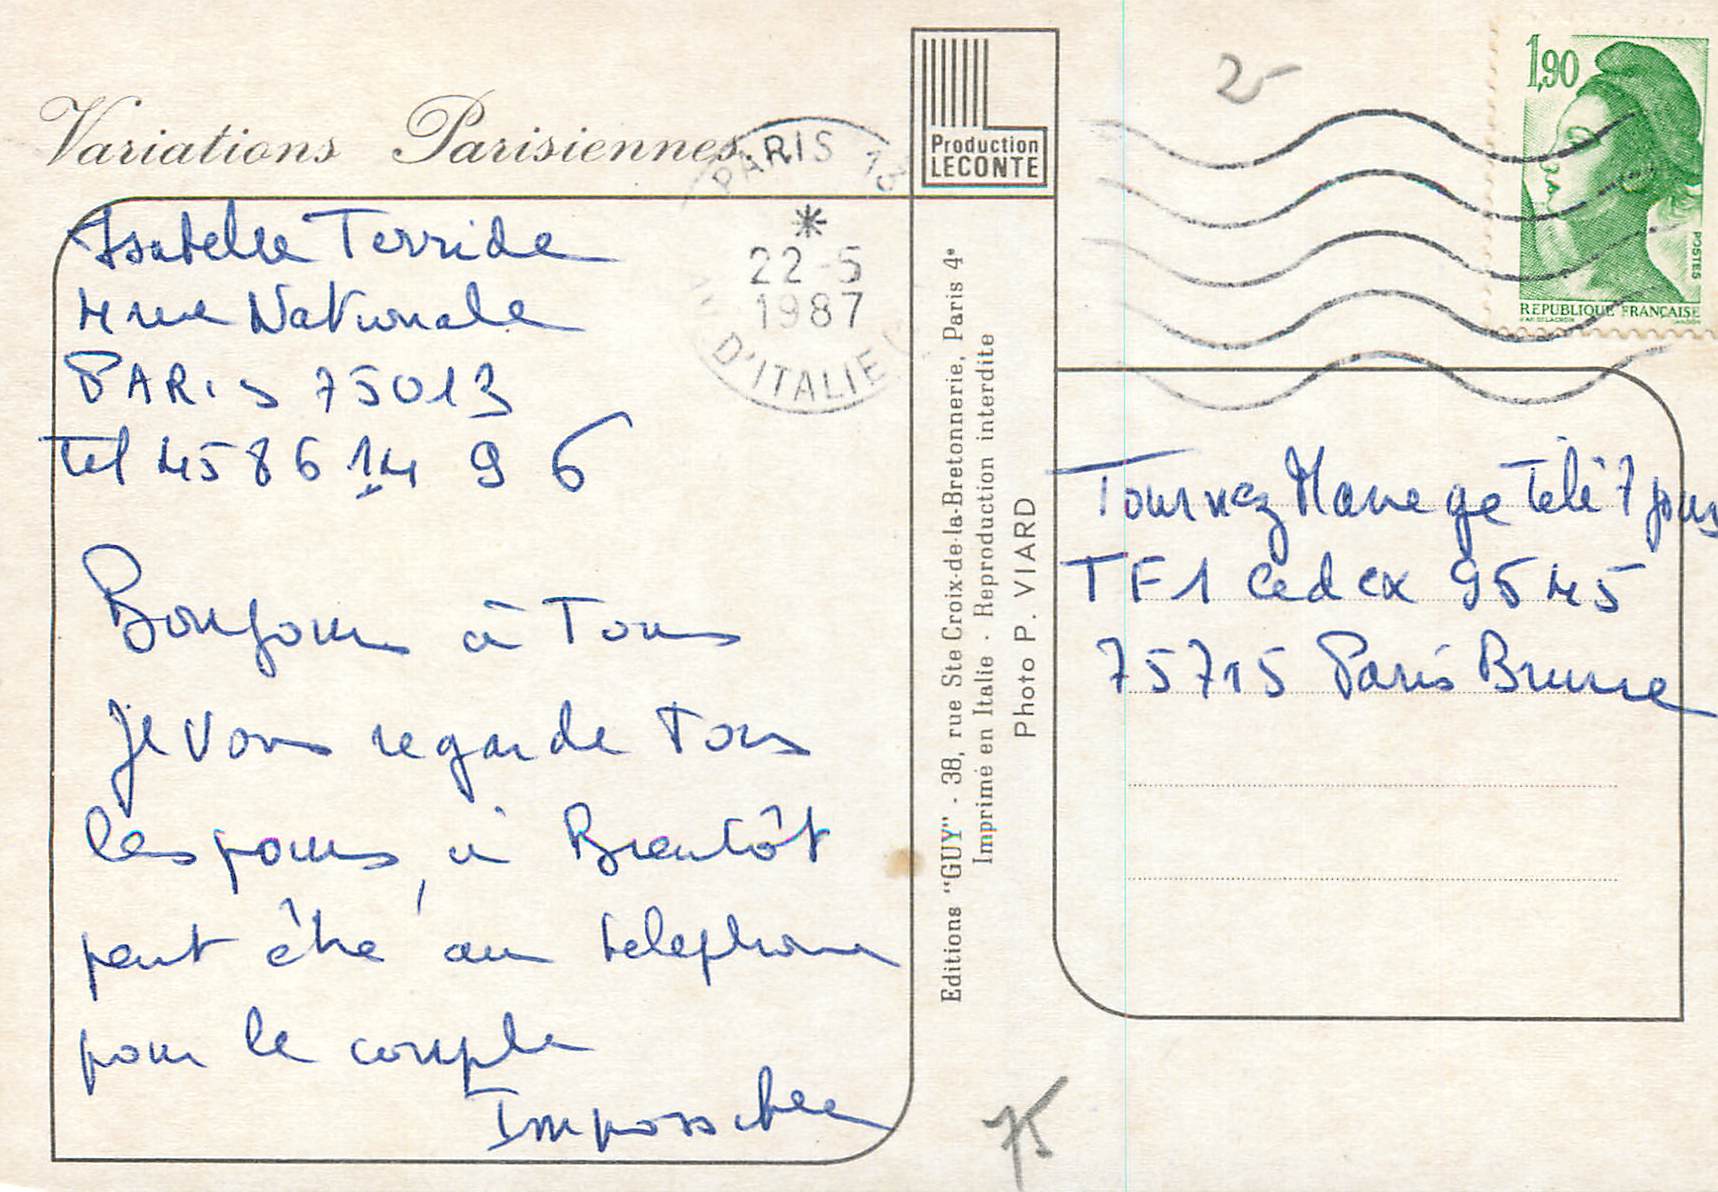 Variations Parisiennes
PARIS 13
22-5
1987
D'ITALIE
Production
LECONTE
2-
1,90
POSTES
REPUBLIQUE FRANÇAISE
Isabelle Terride
4 rue Nationale
PARIS 75013
Tel 45 86 14 9 6
Bonjour à Tous
Je vous regarde Tous
les jours, à Bientôt
peut être au telephone
pour le couple
Impossible
Editions "GUY" - 38, rue Ste Croix-de-la-Bretonnerie, Paris 4e
Imprimé en Italie - Reproduction interdite
Photo P. VIARD
Tournez Manege Télé 7 jours
TF1 Cedex 9545
75715 Paris Brune
75